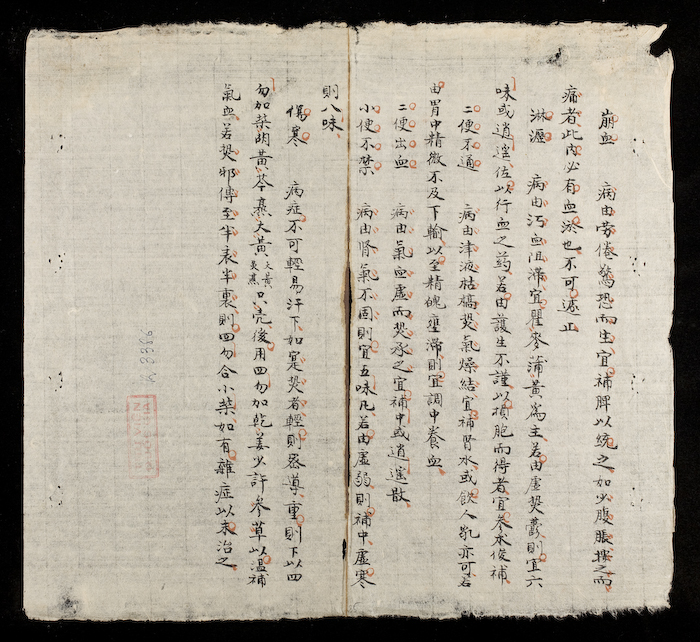 崩血 病由勞倦驚恐而生宜補脾以統之如少腹脹按之而
痛者此內必有血淤也不可遽止
淋瀝 病由汚血阻滯宜瞿麥蒲黃為主若由虛熱鬱則宜六
味或逍遙佐以行血之药若由護生不謹以損胞而得者宜參朮俊補
二便不通 病由津液枯槁熱氣燥結宜補腎水或飲人乳亦可若
由胃中精微不及下輸以至精魄壅滯則宜調中養血
二便出血 病由氣血虛而熱承之宜補中或逍遙散
小便不禁 病由腎氣不固則宜五味凡若由虛弱則補中虛寒
則八味
傷寒 病症不可輕易汗下如寔熱者輕則蜜導重則下以四
勿加柴胡黃芩熟大黃大黃炙熟只壳後用四勿加乾姜少許參草以溫補
氣血若熱邪傳至半表半裏則四勿合小柴如有雜症以末治之